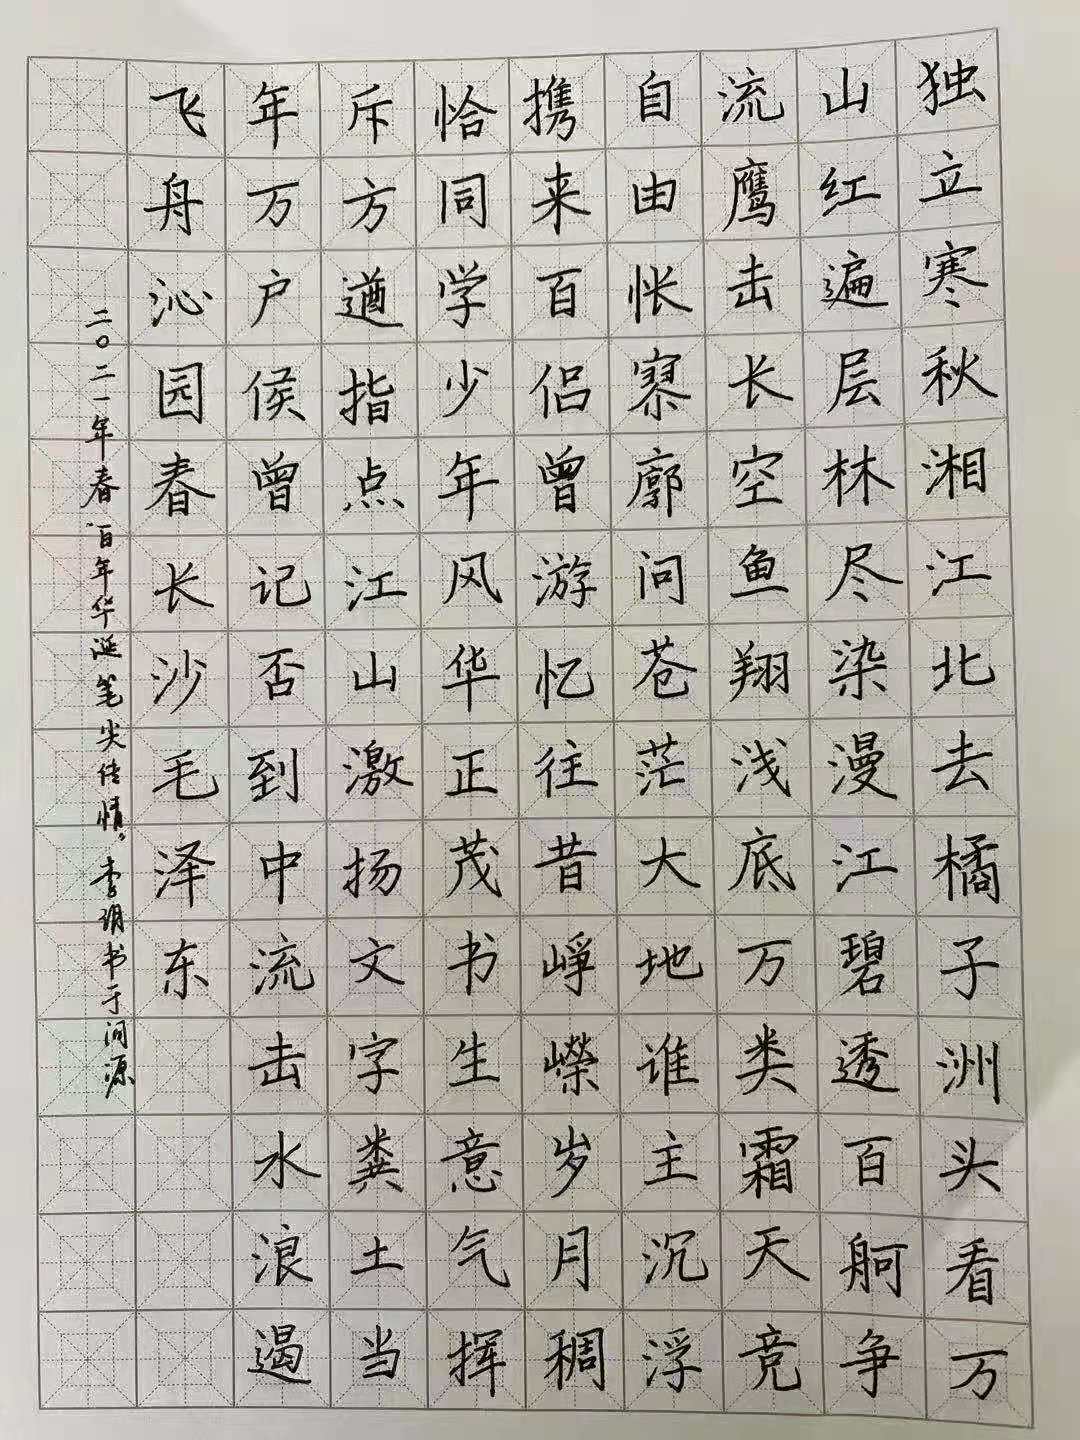 独立寒秋湘江北去橘子洲头看万
山红遍层林尽染漫江碧透百舸争
流鹰击长空鱼翔浅底万类霜天竞
自由怅寥廓问苍茫大地谁主沉浮
携来百侣曾游忆往昔峥嵘岁月稠
恰同学少年风华正茂书生意气挥
斥方遒指点江山激扬文字粪土当
年万户侯曾记否到中流击水浪遏
飞舟沁园春长沙毛泽东
二〇二一年春百年华诞笔尖传情。李玥书于河源